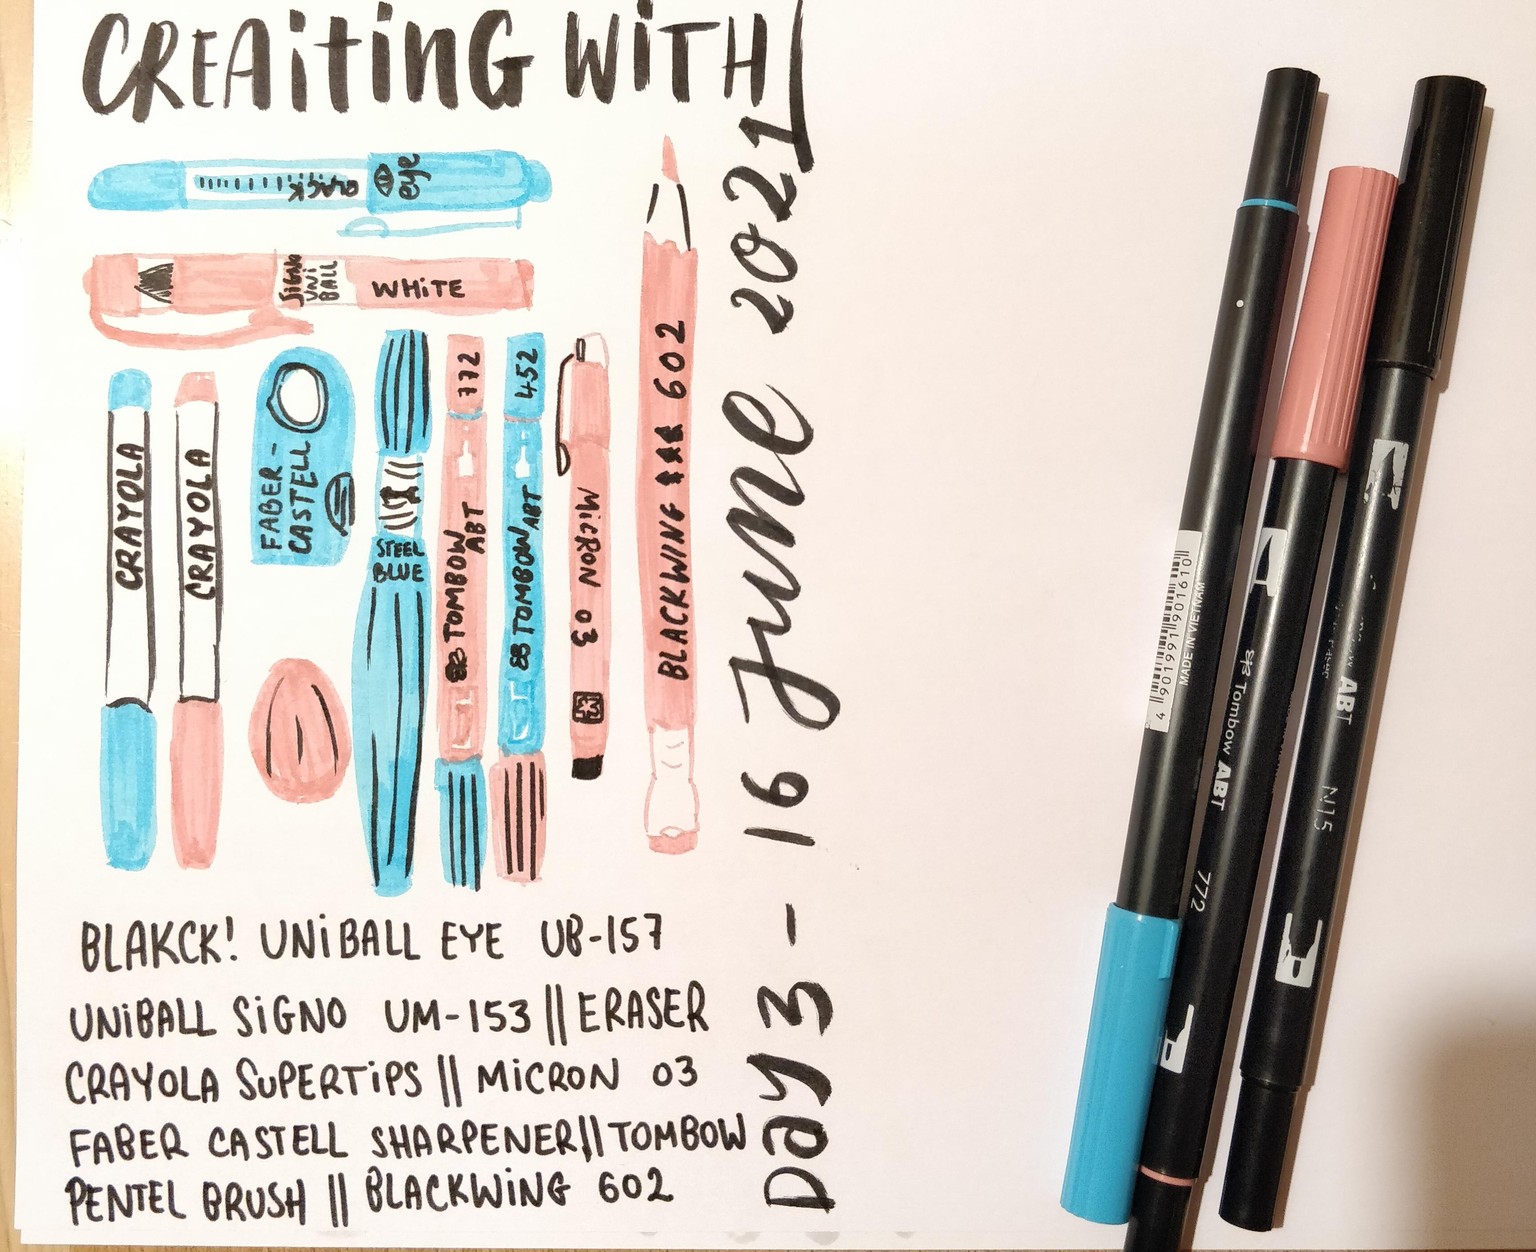 CREAiTiNG WiTH
QARCK
eye
SIGNO
UNi
BALL
WHiTE
CRAYOLA
CRAYOLA
FABER-
CASTELL
STEEL
BLUE
772
TOMBOW
ABT
452
TOMBOW ABT
MiCRON 03
BLACKWiNG 602
DAY 3 - 16 June 2021
BLAKCK! UNiBALL EYE UB-157
UNiBALL SiGNO UM-153 || ERASER
CRAYOLA SUPERTiPS || MiCRON 03
FABER CASTELL SHARPENER || TOMBOW
PENTEL BRUSH || BLACKWiNG 602
4 901991 901610
MADE IN VIETNAM
Tombow ABT 772
ABT N15